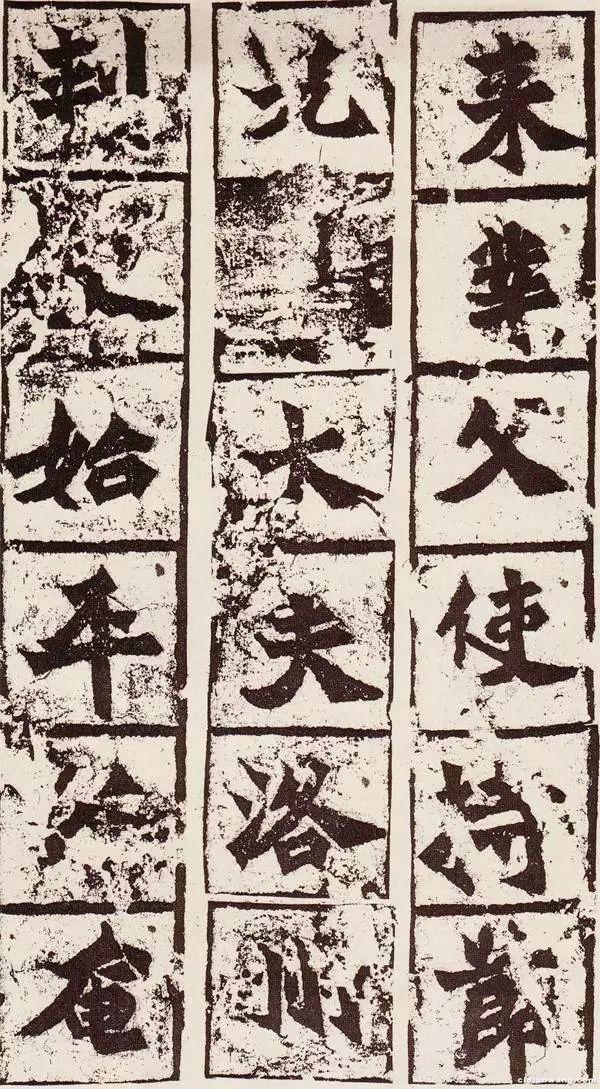 來業父使持節
光大夫洛州
刺史始平公奄